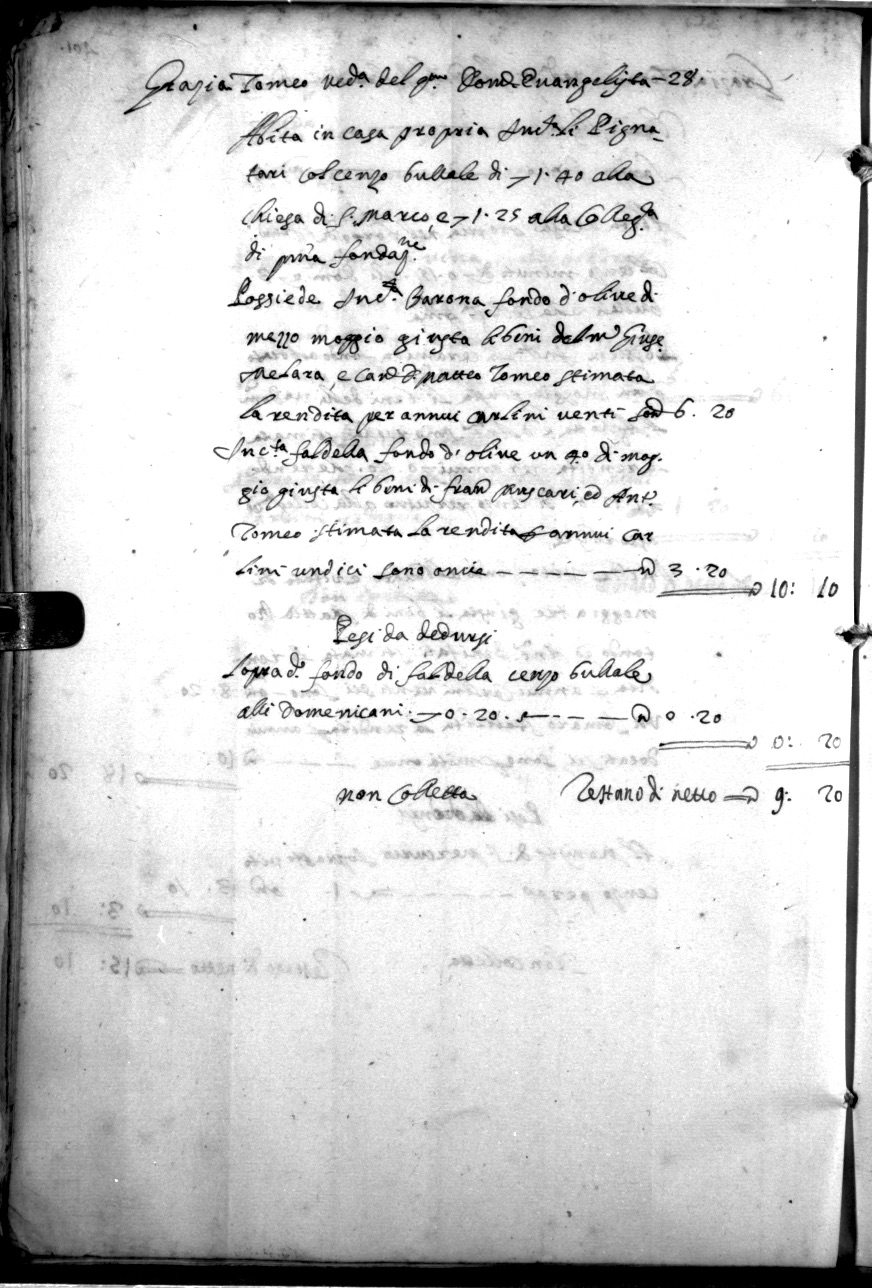 Grazia Tomeo ved.a del q.m Dom.co Evangelista – 28
Abita in casa propria d.ta li Pigna=
tari col cenzo bullale di – 1.40 alla
chiesa di S. Marco, e – 1.25 alla Colleg.ta
di p̃ma fondaz.ne
Possiede Barona fondo d'olive di
mezzo moggio giusta li beni del m.co Giuse.
Melara, e di Matteo Tomeo stimata
la rendita per annui carlini venti 6. 20
faldella fondo d'olive un 4.o di mog.
gio giusta li beni di fran.co Muscari, ed Ant.o
Tomeo stimata la rendita annui car
lini undici sono oncie – – – – – 3 . 20
10: 10
Pesi da dedursi
Sopra d.o fondo di faldella cenzo bullale
alli Domenicani . – 0 . 20 . – – – – 0 . 20
0: 20
non Colletta Restano di netto 9: 20